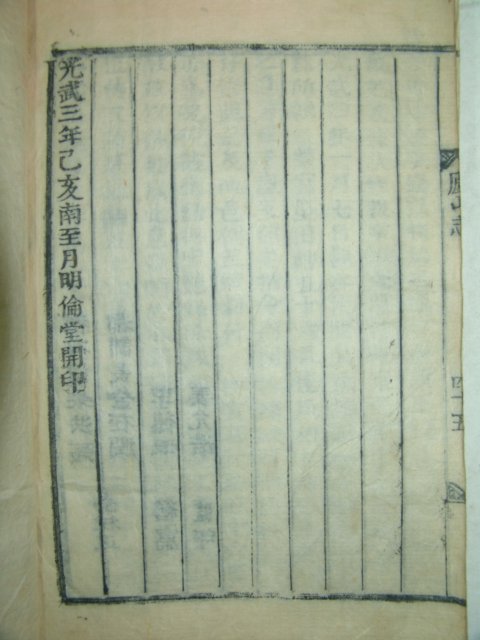 山志
四十五
光武三年己亥南至月明倫堂開印